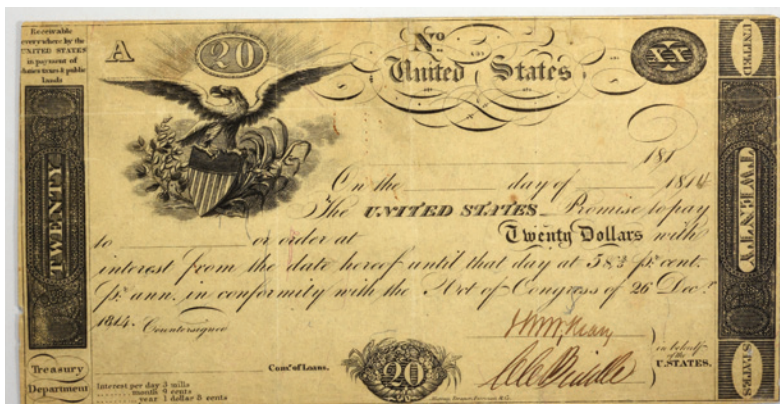 Receivable
everywhere by the
UNITED STATES
in payment of
duties taxes & public
lands
A
20
No.
United States
XX
UNITED
TWENTY
TWENTY
181
On the day of 1814
The UNITED STATES Promise to pay
to or order at Twenty Dollars with
interest from the date hereof until that day at 5 8/3 pr. cent.
pr. ann. in conformity with the Act of Congress of 26 Decr.
1814. Countersigned
in behalf
of the
U.STATES.
Comr. of Loans.
20
Treasury
Department
Interest per day 3 mills
month 9 cents
year 1 dollar 8 cents
STATES